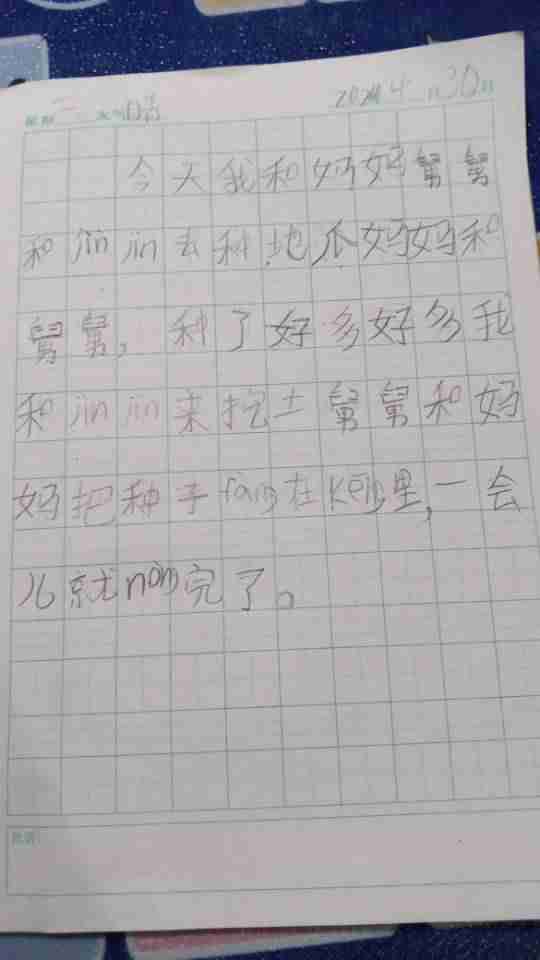 二 晴 2024 4 月30日
今天我和妈妈舅舅
和jin jin去种地瓜妈妈和
舅舅,种了好多好多我
和jin jin来挖土舅舅和妈
妈把种子fang在keng里,一会
儿就nong完了。